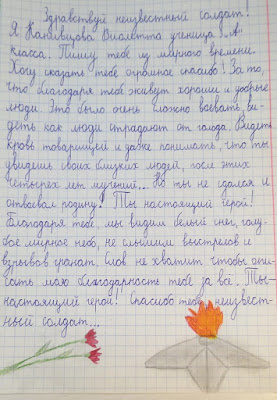 Здравствуй неизвестный солдат!
Я Виолетта ученица "А"
класса. Пишу тебе из мирного времени.
Хочу сказать тебе огромное спасибо! За то,
что благодаря тебе живут хорошие и добрые
люди. Это было очень сложно воевать, ви-
деть как люди страдают от голода. Видеть
кровь товарищей и даже понимать, что ты
увидешь своих близких людей, после этих
четырех лет мучений... Но ты не сдался и
отвоевал родину! Ты настоящий герой!
Благодаря тебе, мы видим белый снег, голу-
бое мирное небо, не слышим выстрелов и
взрывов гранат. Слов не хватит чтобы опи-
сать мою благодарность тебе за всё. Ты-
настоящий герой! Спасибо тебе, неизвест-
ный солдат...